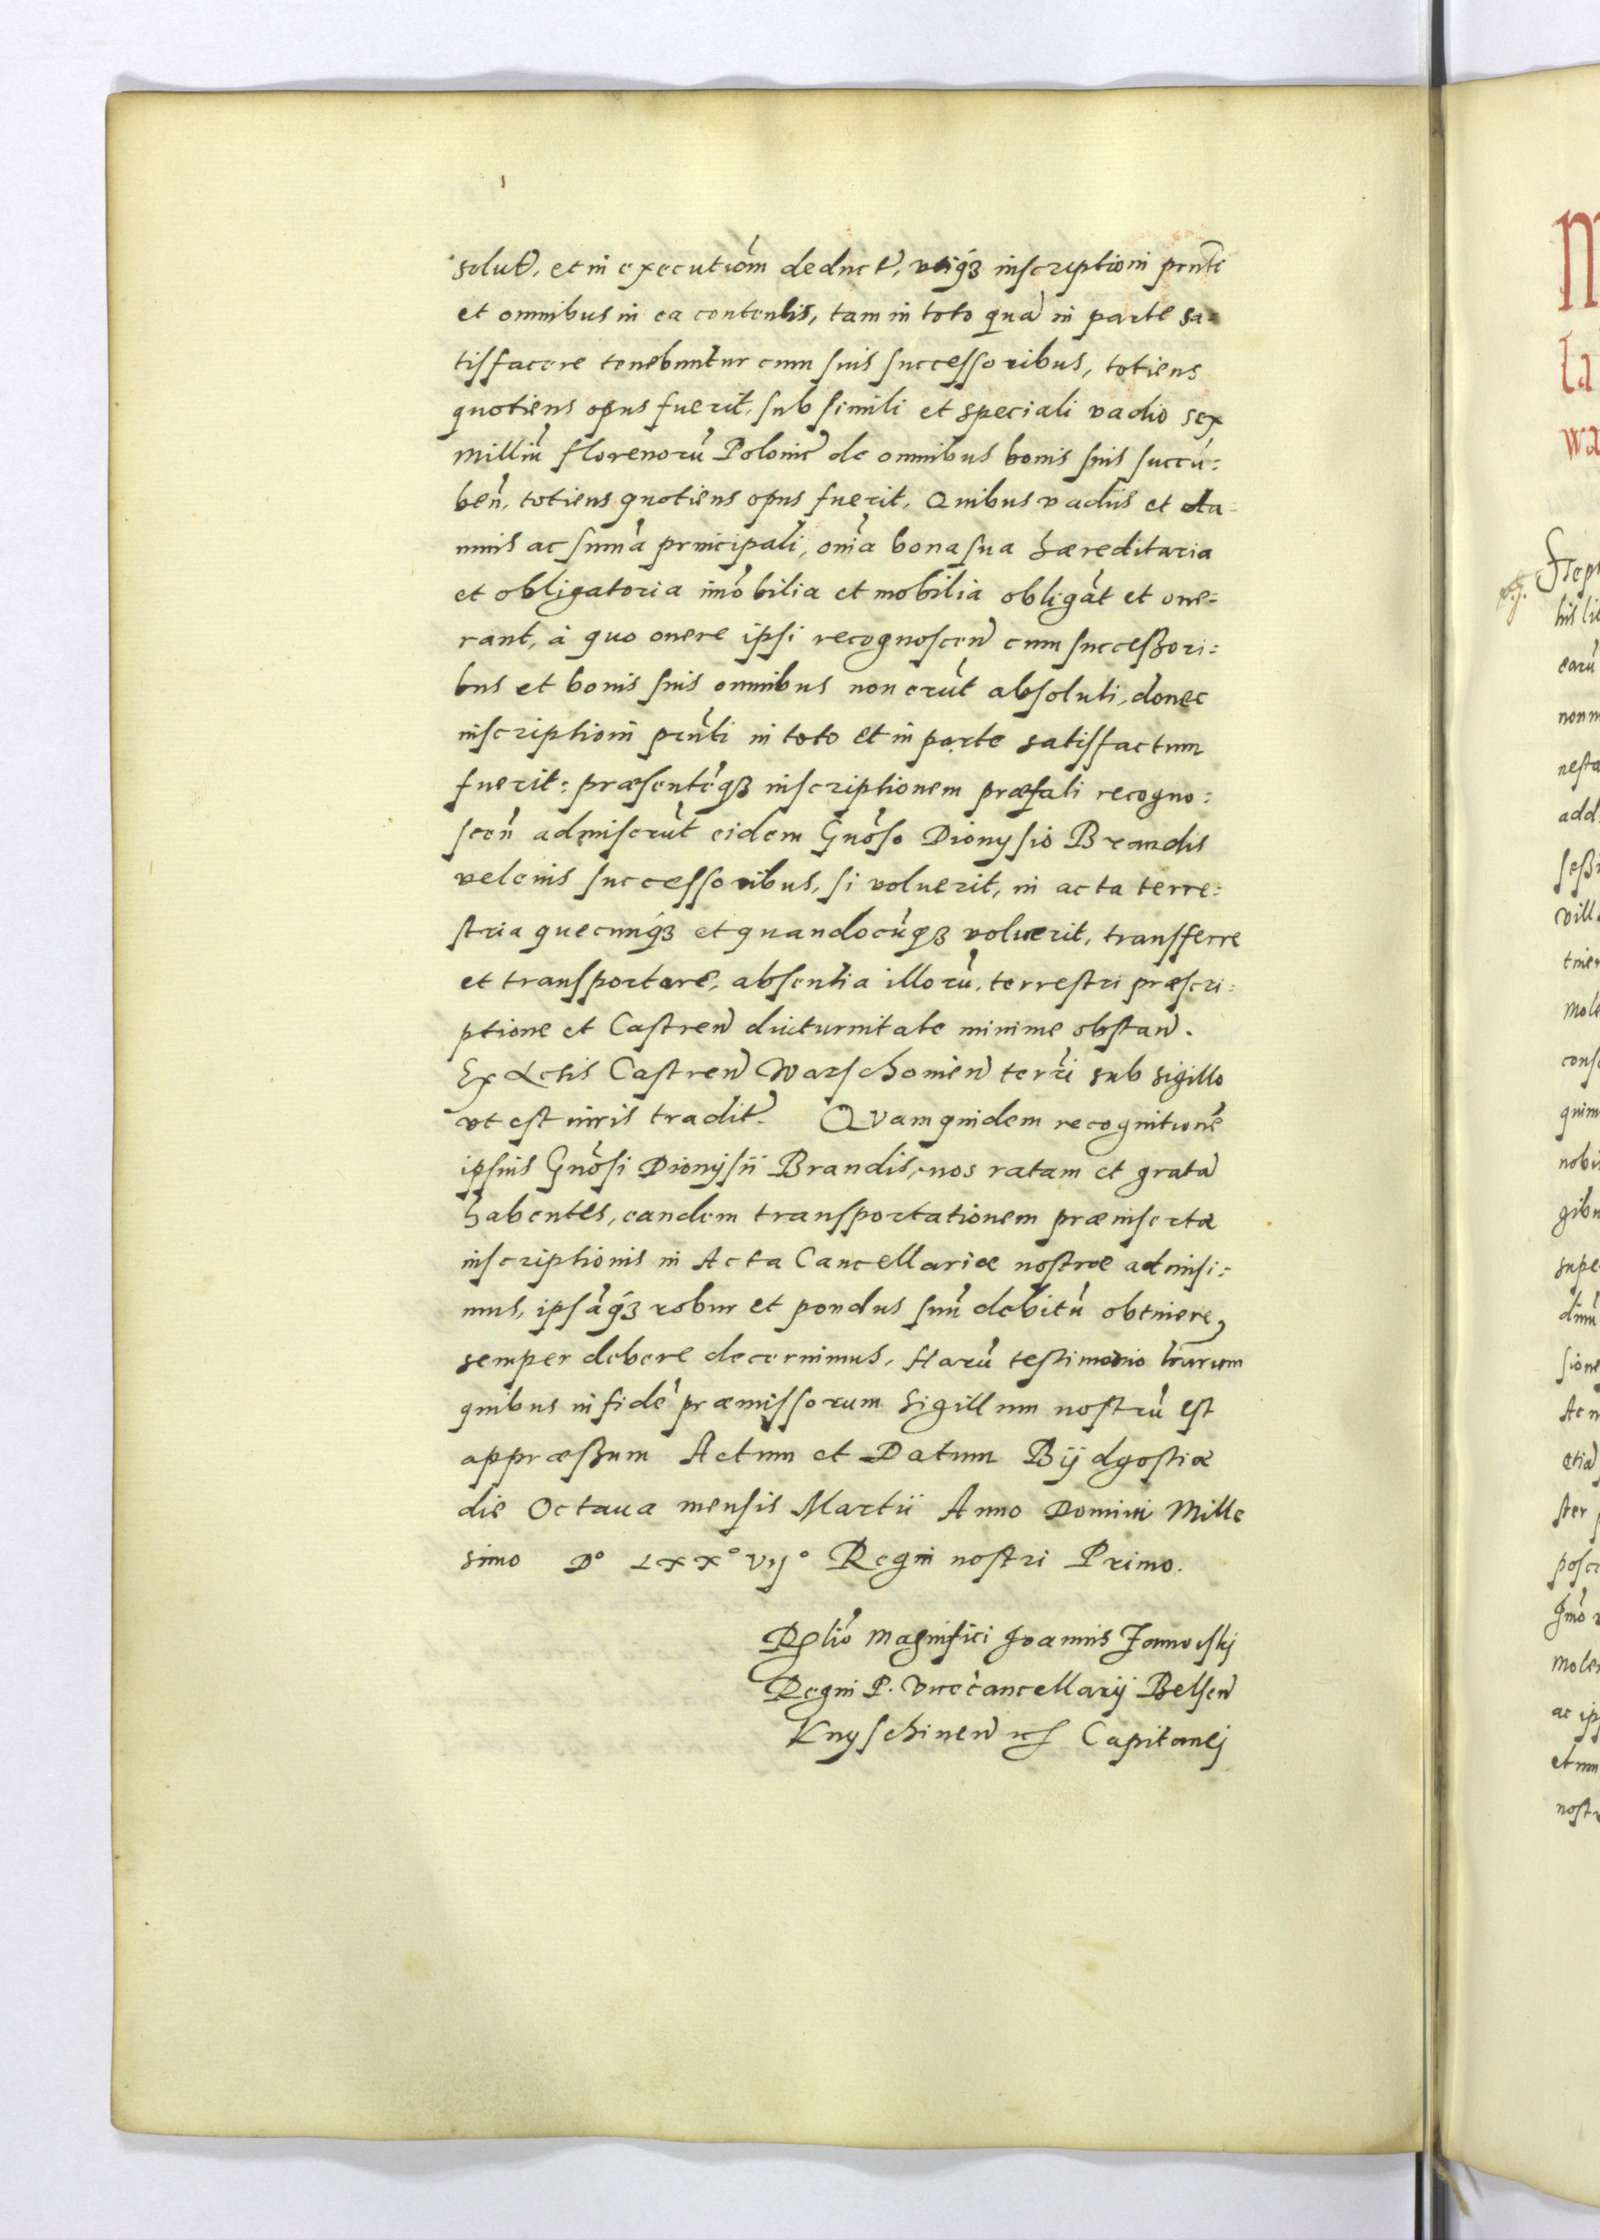 solut̃, et in executiom̃ deduct̃, utiq́ʒ inscriptioni pñti
et omnibus in ea contentis, tam in toto quã in parte sa=
tisfacere tenebuntur cum suis successoribus, totiens
quotiens opus fuerit, sub simili et speciali vadio sex
Milliũ florenorũ Polonic̃ de omnibus bonis suis succũ=
beñ, totiens quotiens opus fuerit, Quibus vadiis et da=
mnis ac sum̃a principali, om̃ia bona sua hæreditaria
et obligatoria im̃obilia et mobilia obligãt et one=
rant, à quo onere ipsi recognosceñ cum successori=
bus et bonis suis omnibus non erũt absoluti, donec
inscriptioni pñti in toto et in parte satisfactum
fuerit: præsentẽqʒ inscriptionem præfati recogno=
sceñ admiserũt eidem Gñoso Dionysio Brandis
vel eius successoribus, si voluerit, in acta terre=
stria quecunq́ʒ et quandocũqʒ voluerit, transferre
et transportare, absentia illorũ, terrestri præscri=
ptione et Castreñ diuturnitate minime obstañ.
Ex Actis Castreñ Warschouieñ terrĩ sub sigillo
ut est iuris tradit̃. Quam quidem recognitionẽ
ipsius Gñosi Dionysii Brandis, nos ratam et gratã
habentes, eandem transportationem præinsertæ
inscriptionis in Acta Cancellariæ nostræ admisi=
mus, ipsãq́ʒ robur et pondus suũ debitũ obtinere
semper debere decernimus, Harũ testimonio lr̃arum
quibus in fidẽ præmissorum Sigillum nostrũ est
appræssum Actum et Datum Bydgostiæ
die Octava mensis Martii Anno Domini Mille
simo D° LXX° vij° Regni nostri Primo.
Rel̃io Magnifici Joannis
Regni P. Vicẽcancellarij Belseñ
Knyschineñ Capitanej